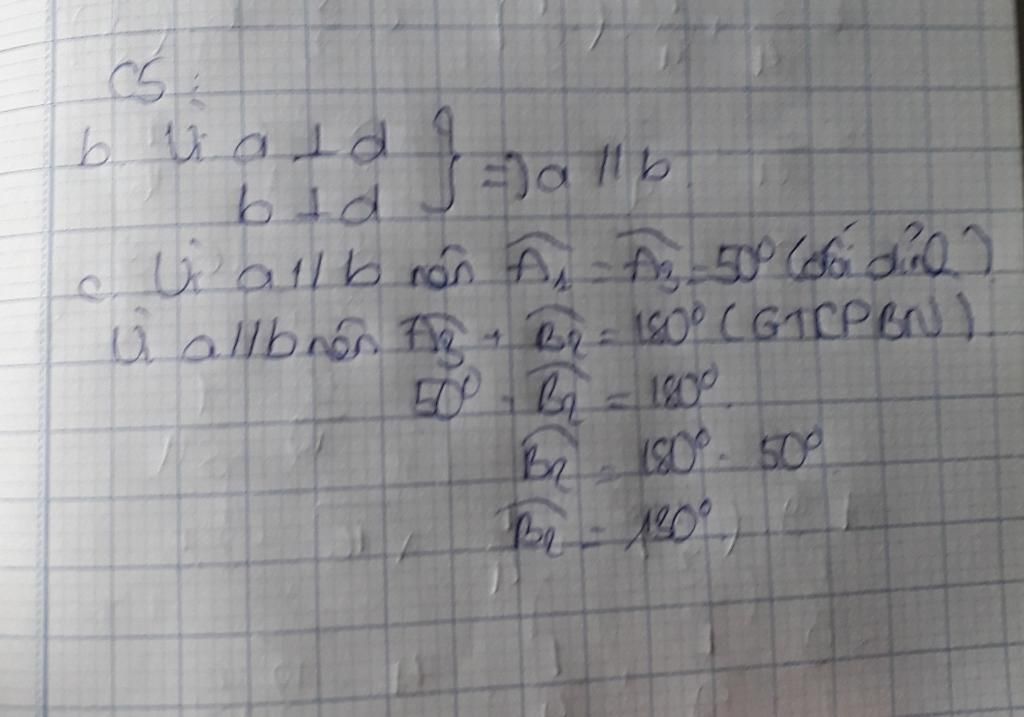 C5:
b. Vì a ⊥ d
b ⊥ d } => a // b
c. Vì a // b nên A₁ = A₃ = 50° (đối đỉnh)
Vì a // b nên A₃ + B₂ = 180° (GTCPBN)
50° + B₂ = 180°
B₂ = 180° - 50°
B₂ = 130°